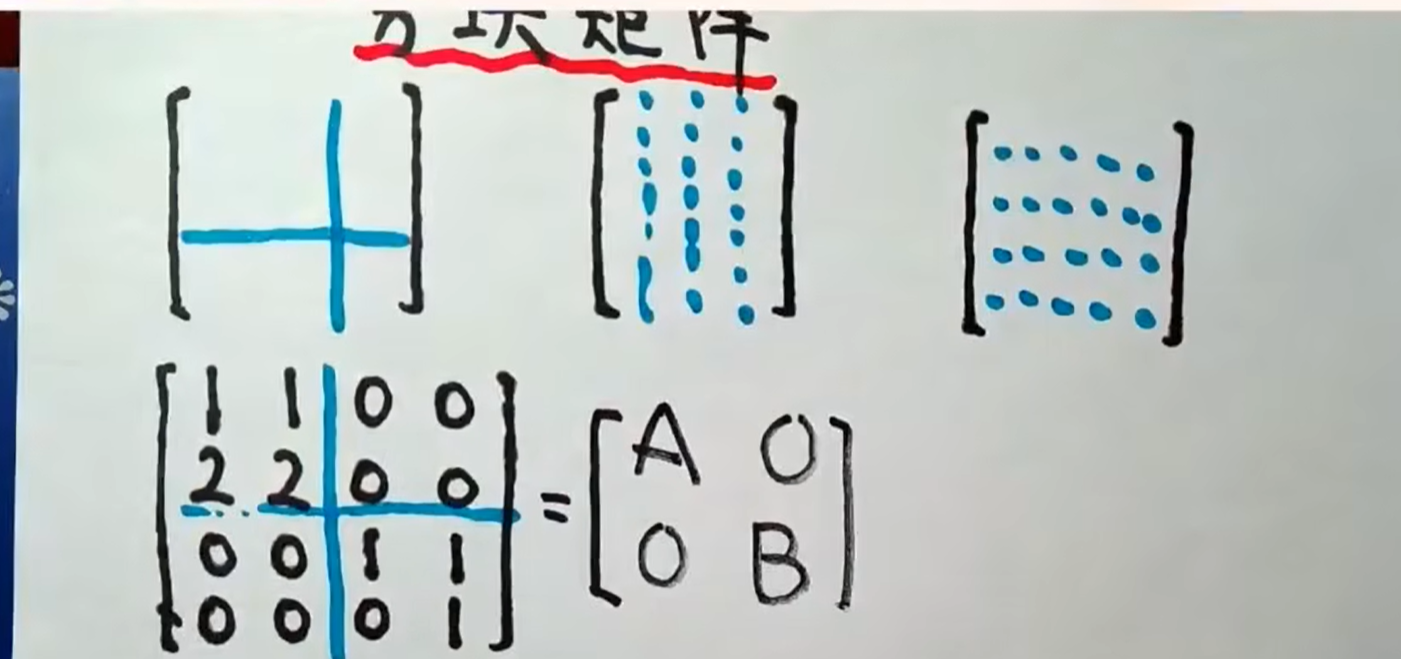 分块矩阵
1 1 0 0
2 2 0 0
0 0 1 1
0 0 0 1
=
A O
O B